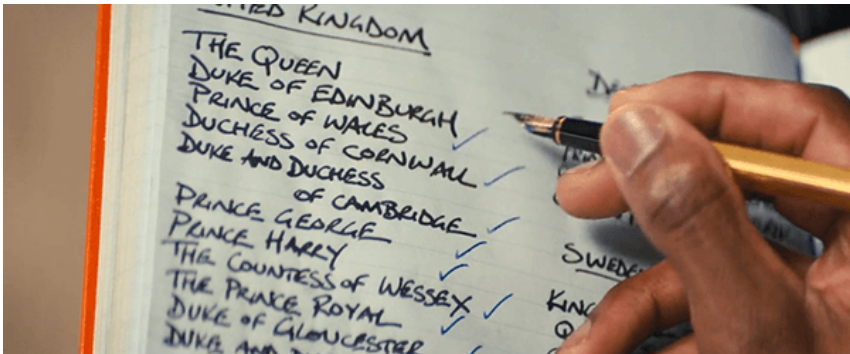 KINGDOM
THE QUEEN
DUKE OF EDINBURGH
PRINCE OF WALES
DUCHESS OF CORNWALL
DUKE AND DUCHESS
OF CAMBRIDGE
PRINCE GEORGE
PRINCE HARRY
THE COUNTESS OF WESSEX
THE PRINCE ROYAL
DUKE OF GLOUCESTER
DUKE AND